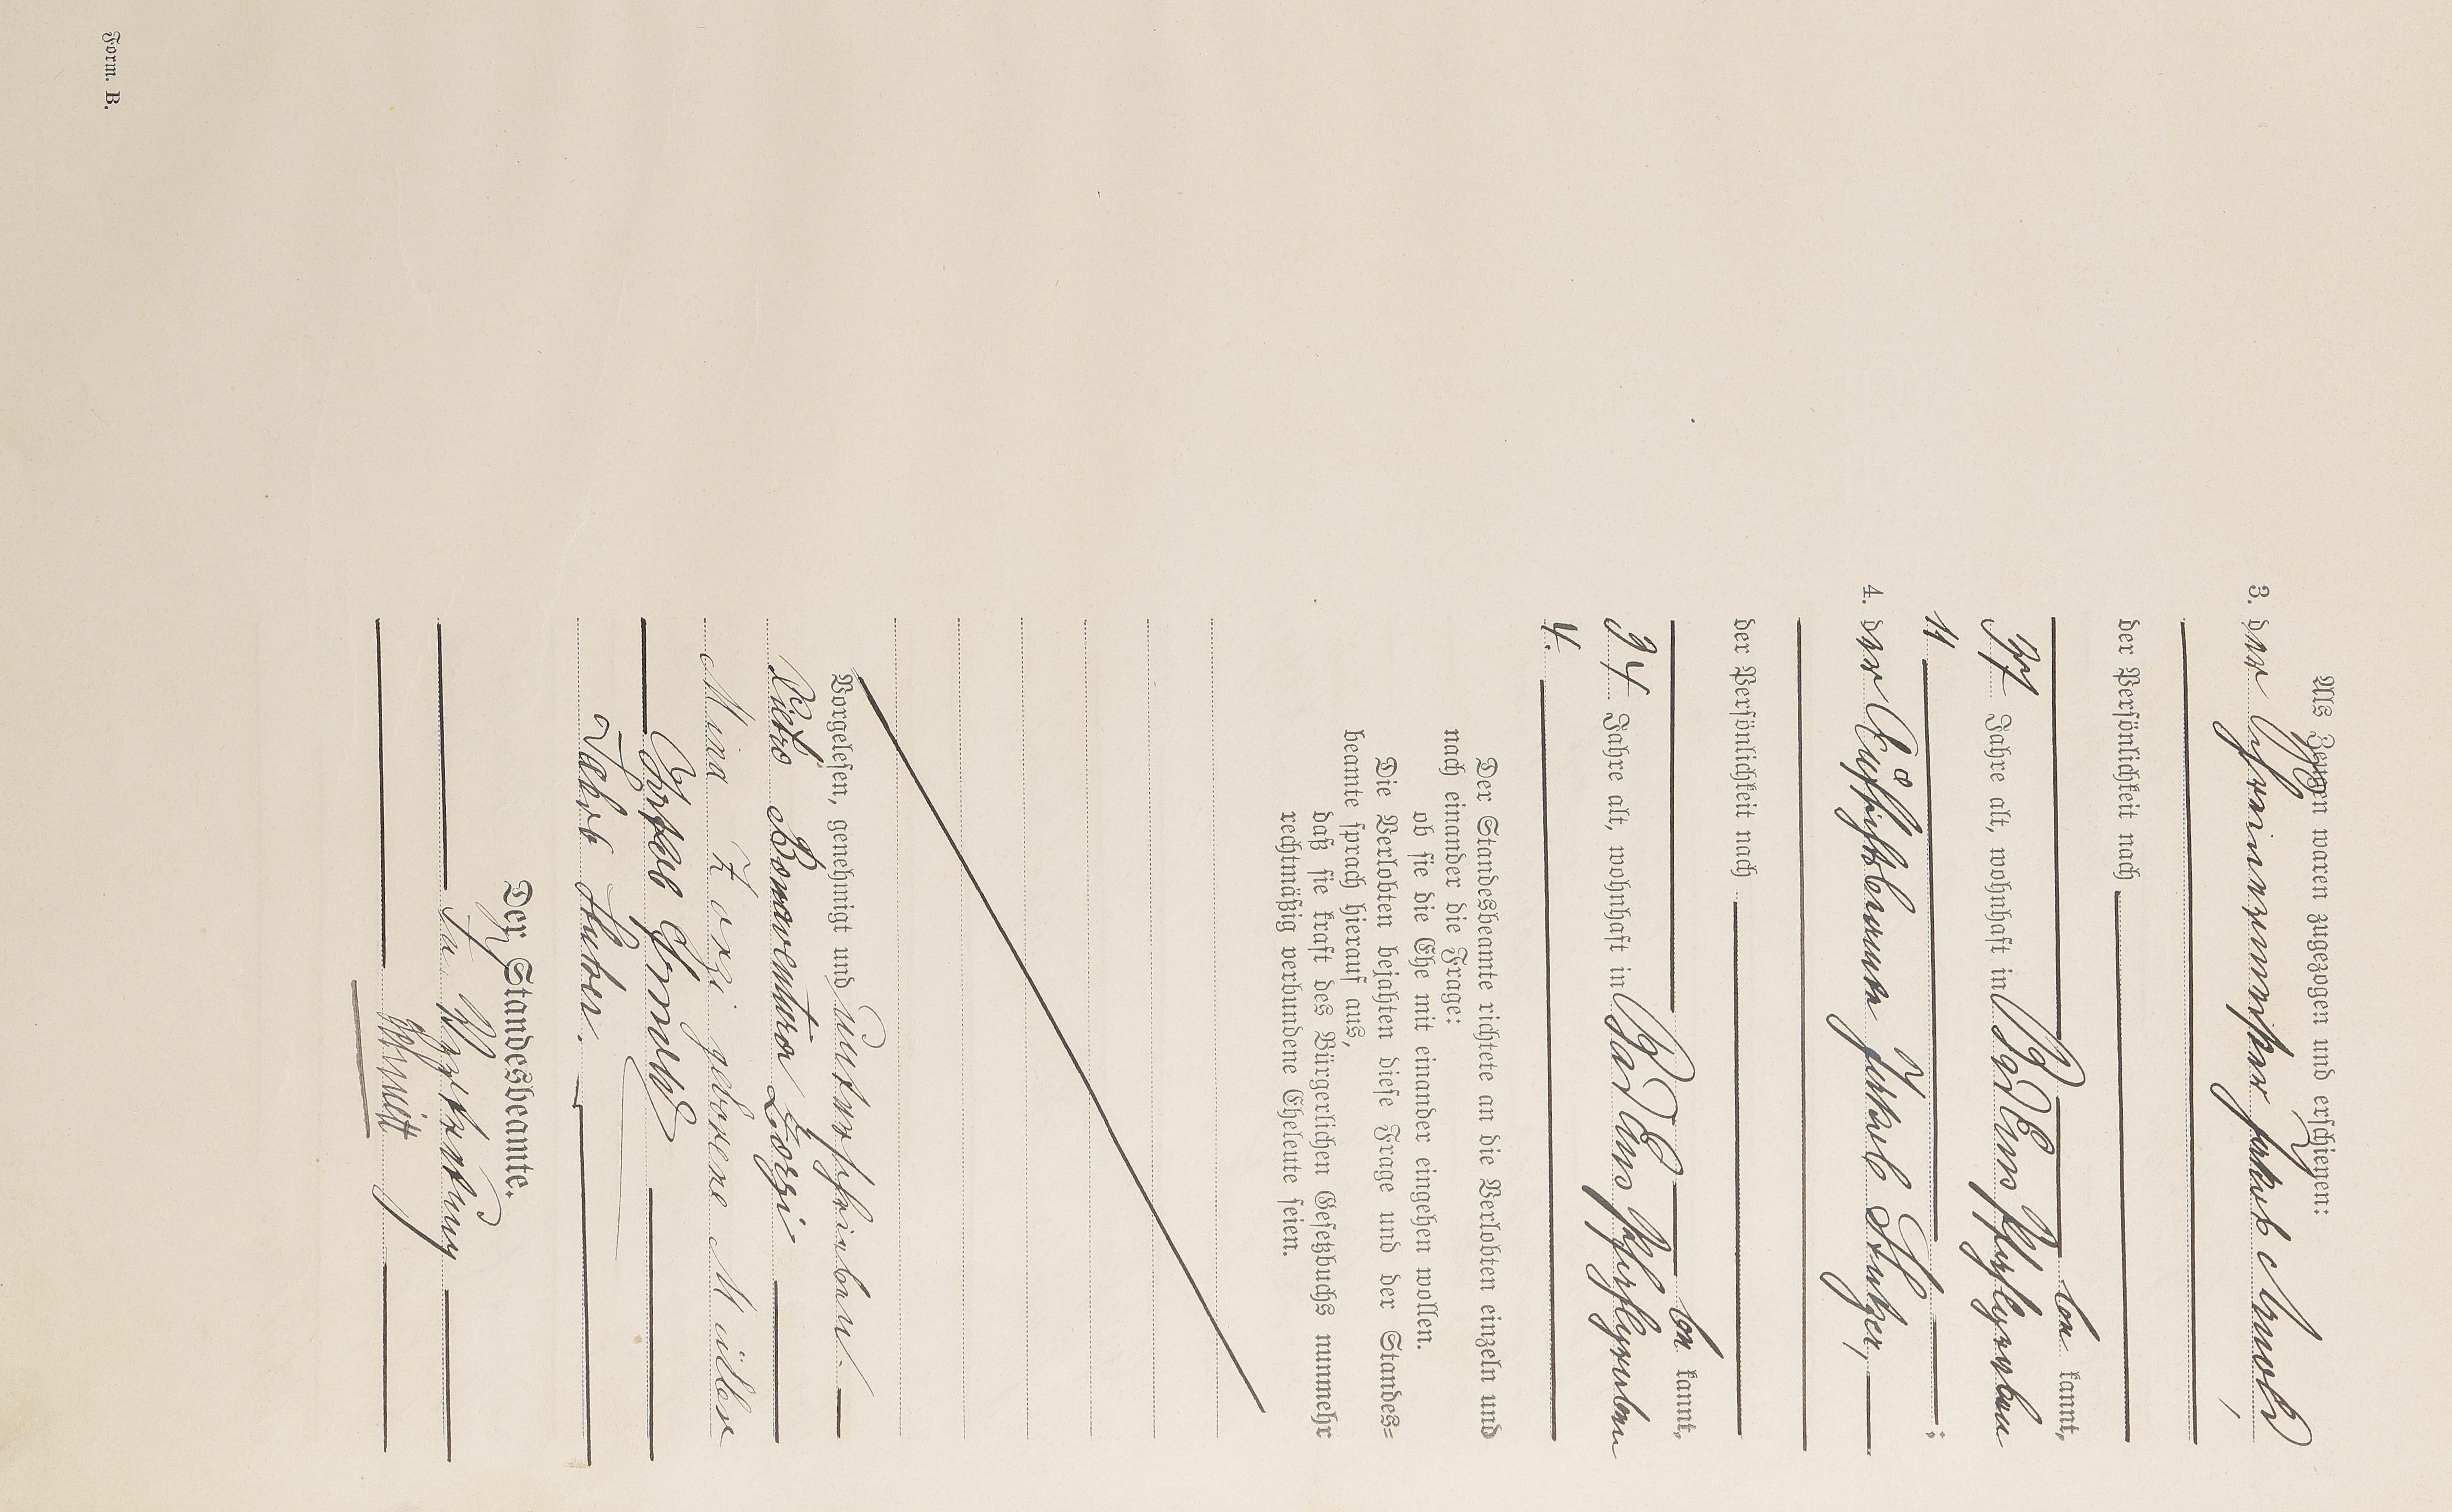 Als Zeugen waren zugezogen und erschienen:
3. der Schreinermeister Jakob Arnold,
der Persönlichkeit nach
be kannt,
Jahre alt, wohnhaft in Bad Ems
4. der Jakob Huber,
der Persönlichkeit nach
be kannt,
34 Jahre alt, wohnhaft in Bad Ems
4.
Der Standesbeamte richtete an die Verlobten einzeln und
nach einander die Frage:
ob sie die Ehe mit einander eingehen wollen.
Die Verlobten bejahten diese Frage und der Standes-
beamte sprach hierauf aus,
daß sie kraft des Bürgerlichen Gesetzbuchs nunmehr
rechtmäßig verbundene Eheleute seien.
Vorgelesen, genehmigt und unterschrieben
Pietro Bonaventura Zorzi
Mina Zorzi geborene Müller
Jakob Arnold
Jakob Huber.
Der Standesbeamte.
In Vertretung
Schmitt
Form. B.